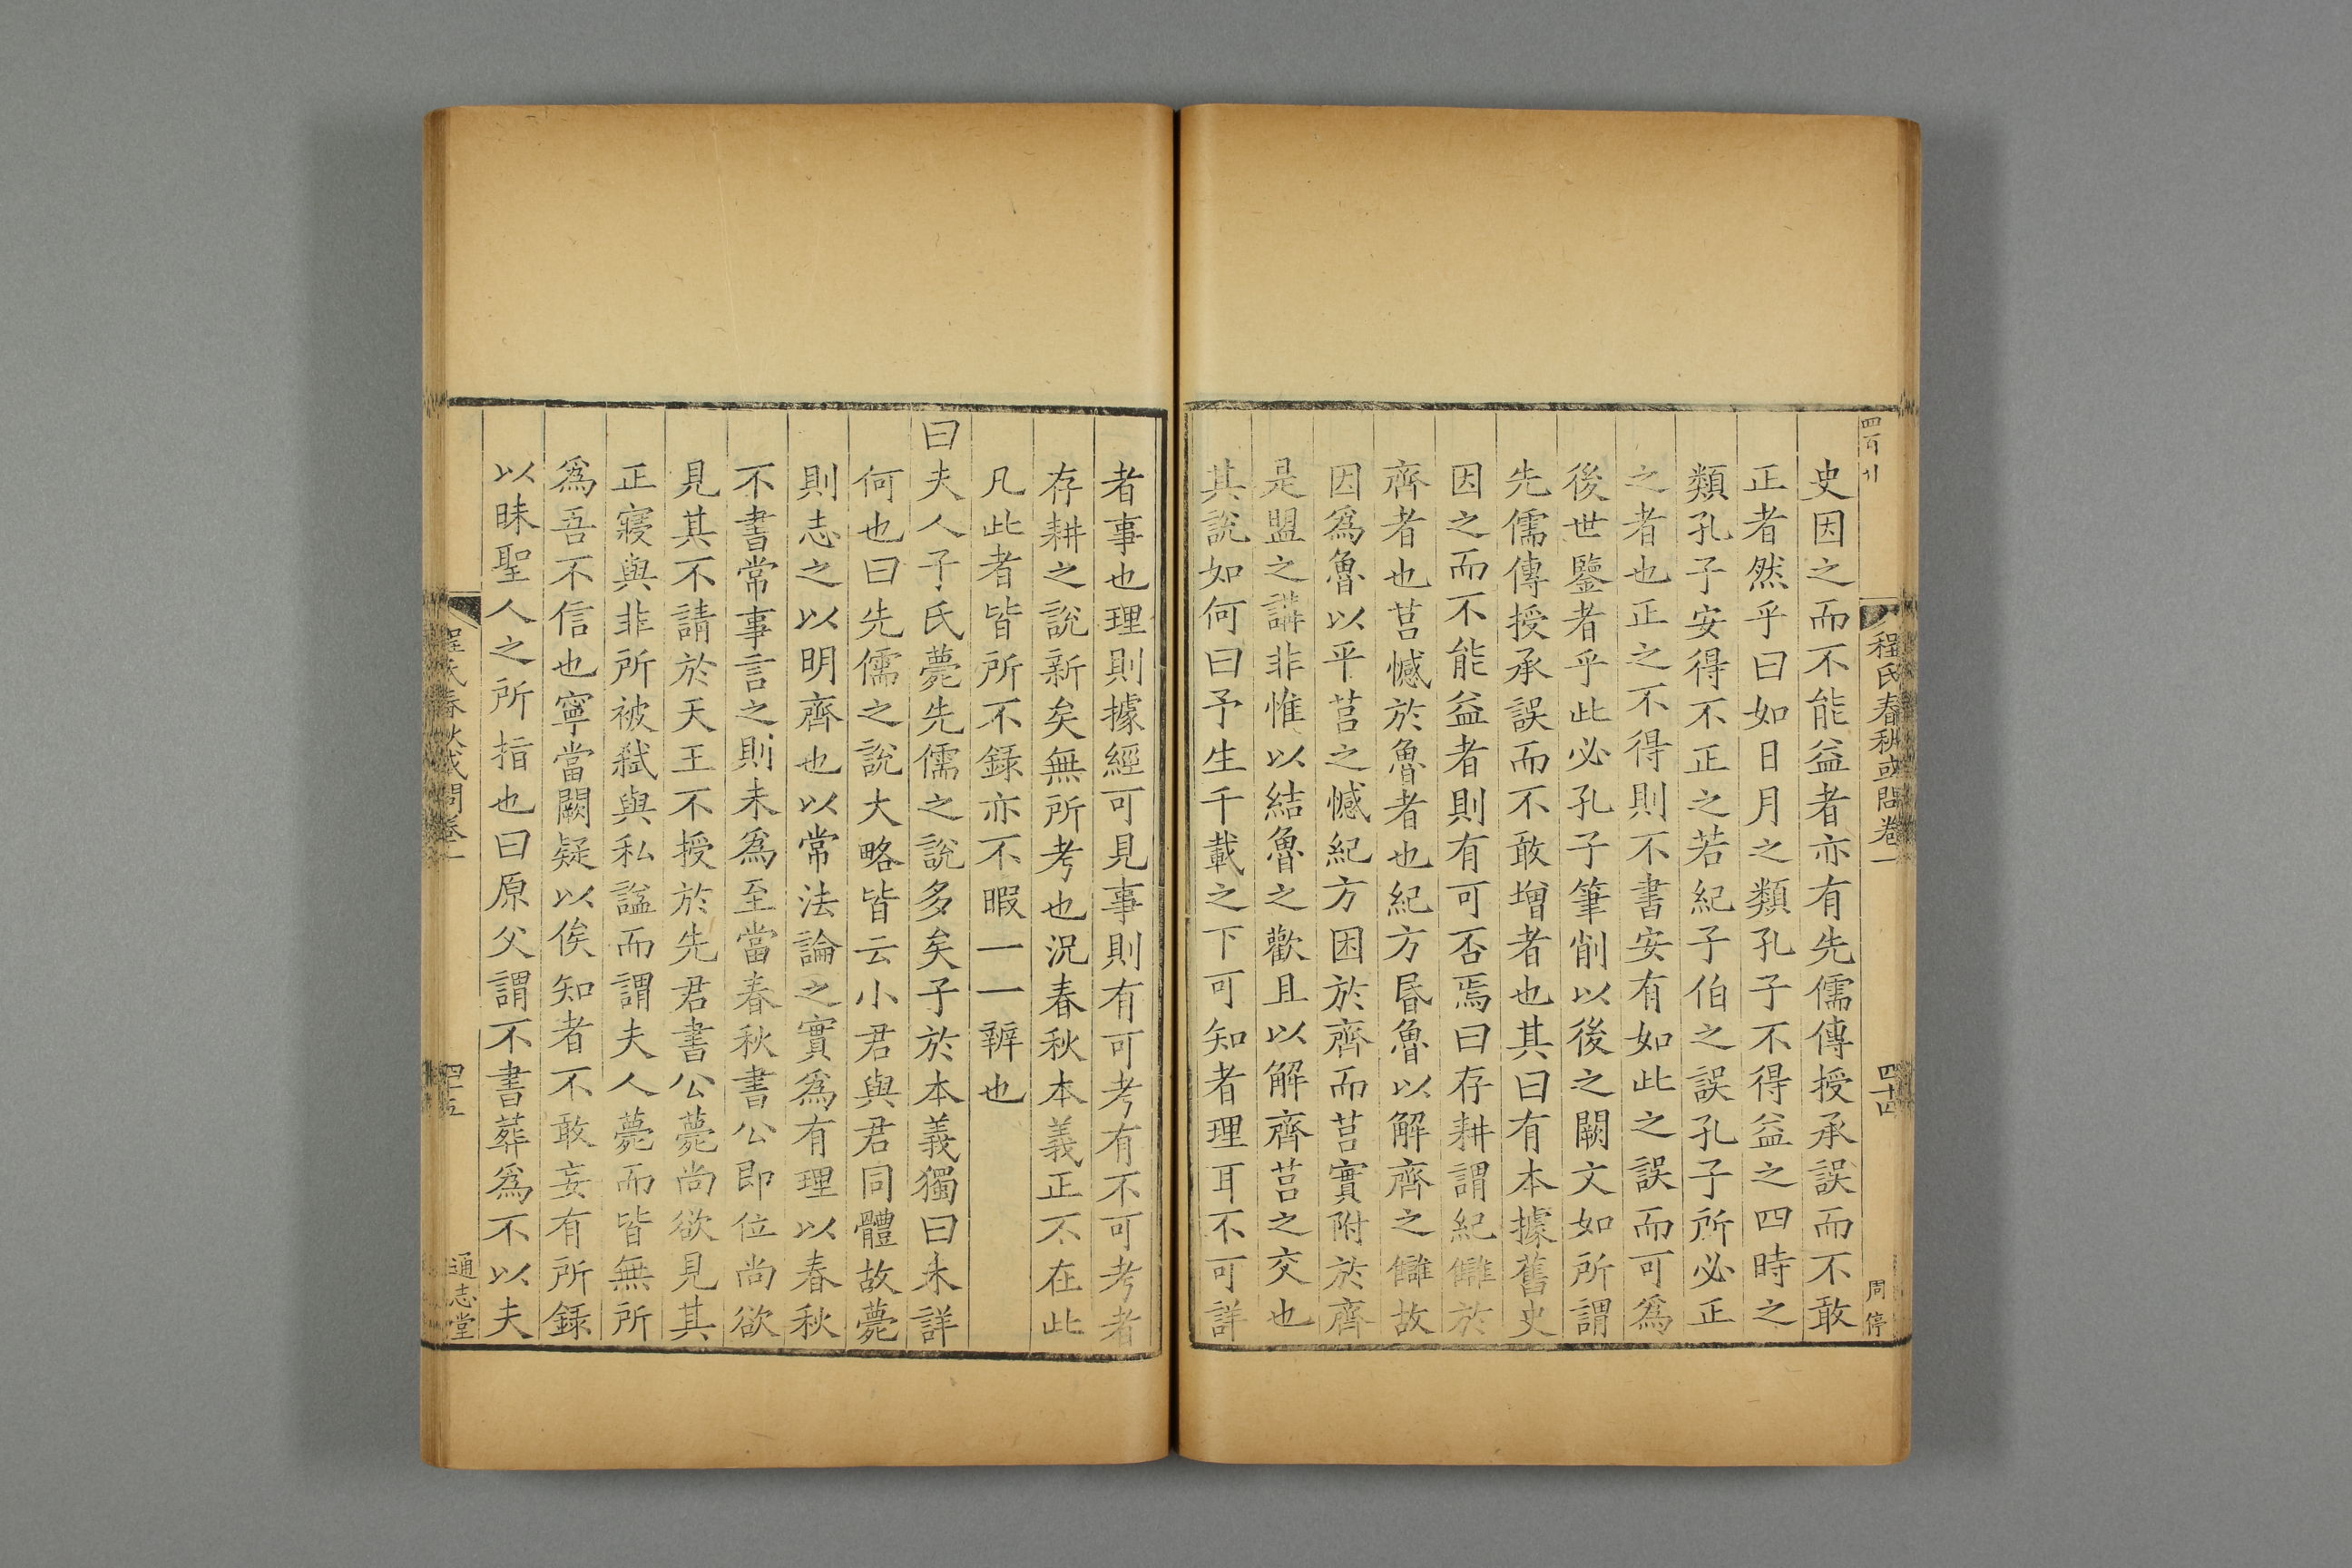 四百廿
程氏春秋或問卷一
四十四
周停
史因之而不能益者亦有先儒傳授承誤而不敢
正者然乎曰如日月之類孔子不得益之四時之
類孔子安得不正之若紀子伯之誤孔子所必正
之者也正之不得則不書安有如此之誤而可爲
後世鑒者乎此必孔子筆削以後之闕文如所謂
先儒傳授承誤而不敢增者也其曰有本據舊史
因之而不能益者則有可否焉曰存耕謂紀讎於
齊者也莒憾於魯者也紀方昬魯以解齊之讎故
因爲魯以平莒之憾紀方困於齊而莒實附於齊
是盟之講非惟以結魯之歡且以解齊莒之交也
其說如何曰予生千載之下可知者理耳不可詳
者事也理則據經可見事則有可考有不可考者
存耕之說新矣無所考也況春秋本義正不在此
凡此者皆所不錄亦不暇一一辨也
曰夫人子氏薨先儒之說多矣子於本義獨曰未詳
何也曰先儒之說大略皆云小君與君同體故薨
則志之以明齊也以常法論之實爲有理以春秋
不書常事言之則未爲至當春秋書公即位尚欲
見其不請於天王不授於先君書公薨尚欲見其
正寢與非所被弒與私諡而謂夫人薨而皆無所
爲吾不信也寧當闕疑以俟知者不敢妄有所錄
以昧聖人之所指也曰原父謂不書葬爲不以夫
程氏春秋或問卷一
四十五
通志堂